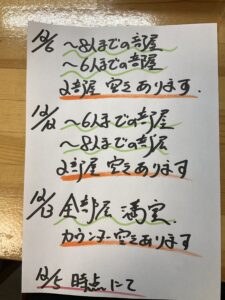 12/6 〜8人までの部屋
〜6人までの部屋
2部屋 空きあります.
12/12 〜6人までの部屋
〜8人までの部屋
2部屋 空きあります
12/13 全部屋 満室.
カウンター空きあります
12/5 時点にて